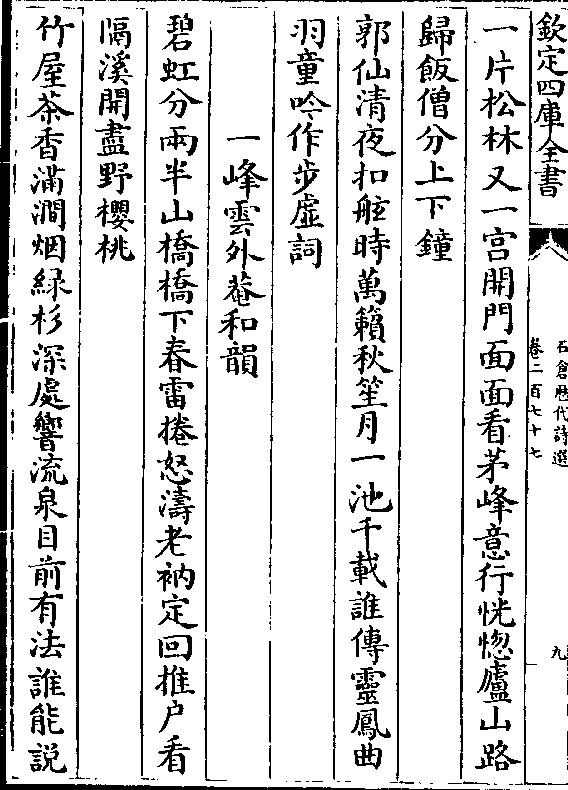 欽定四庫全書
石倉歴代詩選
卷二百七十七
九
一片松林又一宫開門面面看茅峰意行恍惚廬山路
歸飯僧分上下鐘
郭仙清夜扣舷時萬籟秋笙月一池千載誰傳靈鳳曲
羽童吟作步虚詞
一峰雲外菴和韻
碧虹分兩半山橋橋下春雷捲怒濤老衲定回推户看
隔溪開盡野櫻桃
竹屋茶香滿澗烟緑杉深處響流泉目前有法誰能説